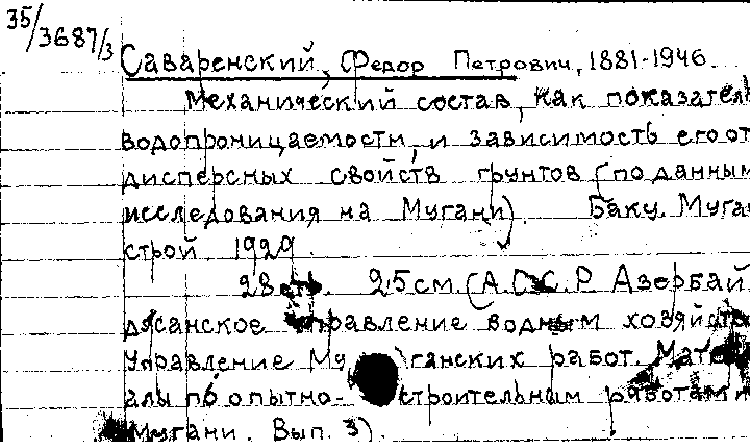 35/3687/3
Саваренский, Федор Петрович, 1881-1946
Механический состав, как показател
водопроницаемости, и зависимость его от
дисперсных свойств грунтов (по данным
исследования на Мугани). Баку. Муга
строй 1929.
28 стр. 25 см. (А.С.С.Р Азербай
джанское управление водным хозяйств
Управление Му ганских работ. Матер
алы по опытно- строительным работам и
Мугани. Вып. 3).